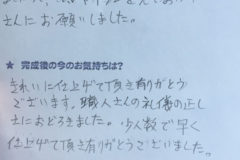 さんにお願いしました。
★ 完成後の今のお気持ちは?
きれいに仕上げて頂き有りがとう
ございます。職人さんの礼儀の正し
さにおどろきました。少人数で早く
仕上げて頂き有りがとうございました。